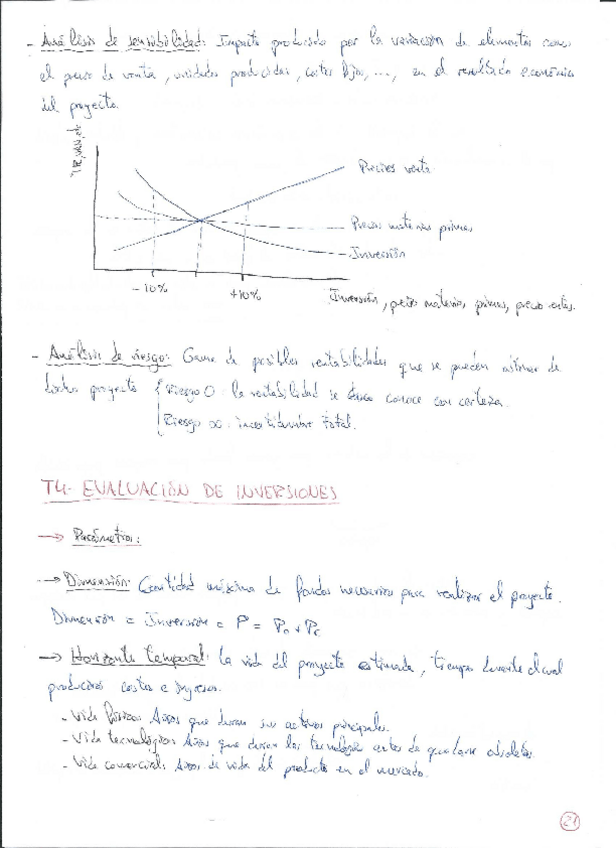 - Análisis de sensibilidad: Impacto producido por la variación de elementos como
el precio de venta, unidades producidas, costes fijos, ..., en el resultado económico
del proyecto.
TIR, VAN, etc
Precios venta
Precios materias primas
Inversión
-10%
+10%
Inversión, precio materias primas, precio ventas.
- Análisis de riesgo: Gama de posibles rentabilidades que se pueden estimar de
dicho proyecto { Riesgo 0: la rentabilidad se conoce con certeza.
Riesgo ∞: incertidumbre total.
T4.- EVALUACIÓN DE INVERSIONES
→ Parámetros:
→ Dimensión: Cantidad máxima de fondos necesarios para realizar el proyecto.
Dimensión = Inversión = P = Pn + Pc
→ Horizonte temporal: la vida del proyecto estimada, tiempo durante el cual
producimos costes e ingresos.
- Vida física: Años que duran sus activos principales.
- Vida tecnológica: Años que duran las tecnologías antes de quedarse obsoletas.
- Vida comercial: Años de vida del producto en el mercado.
21